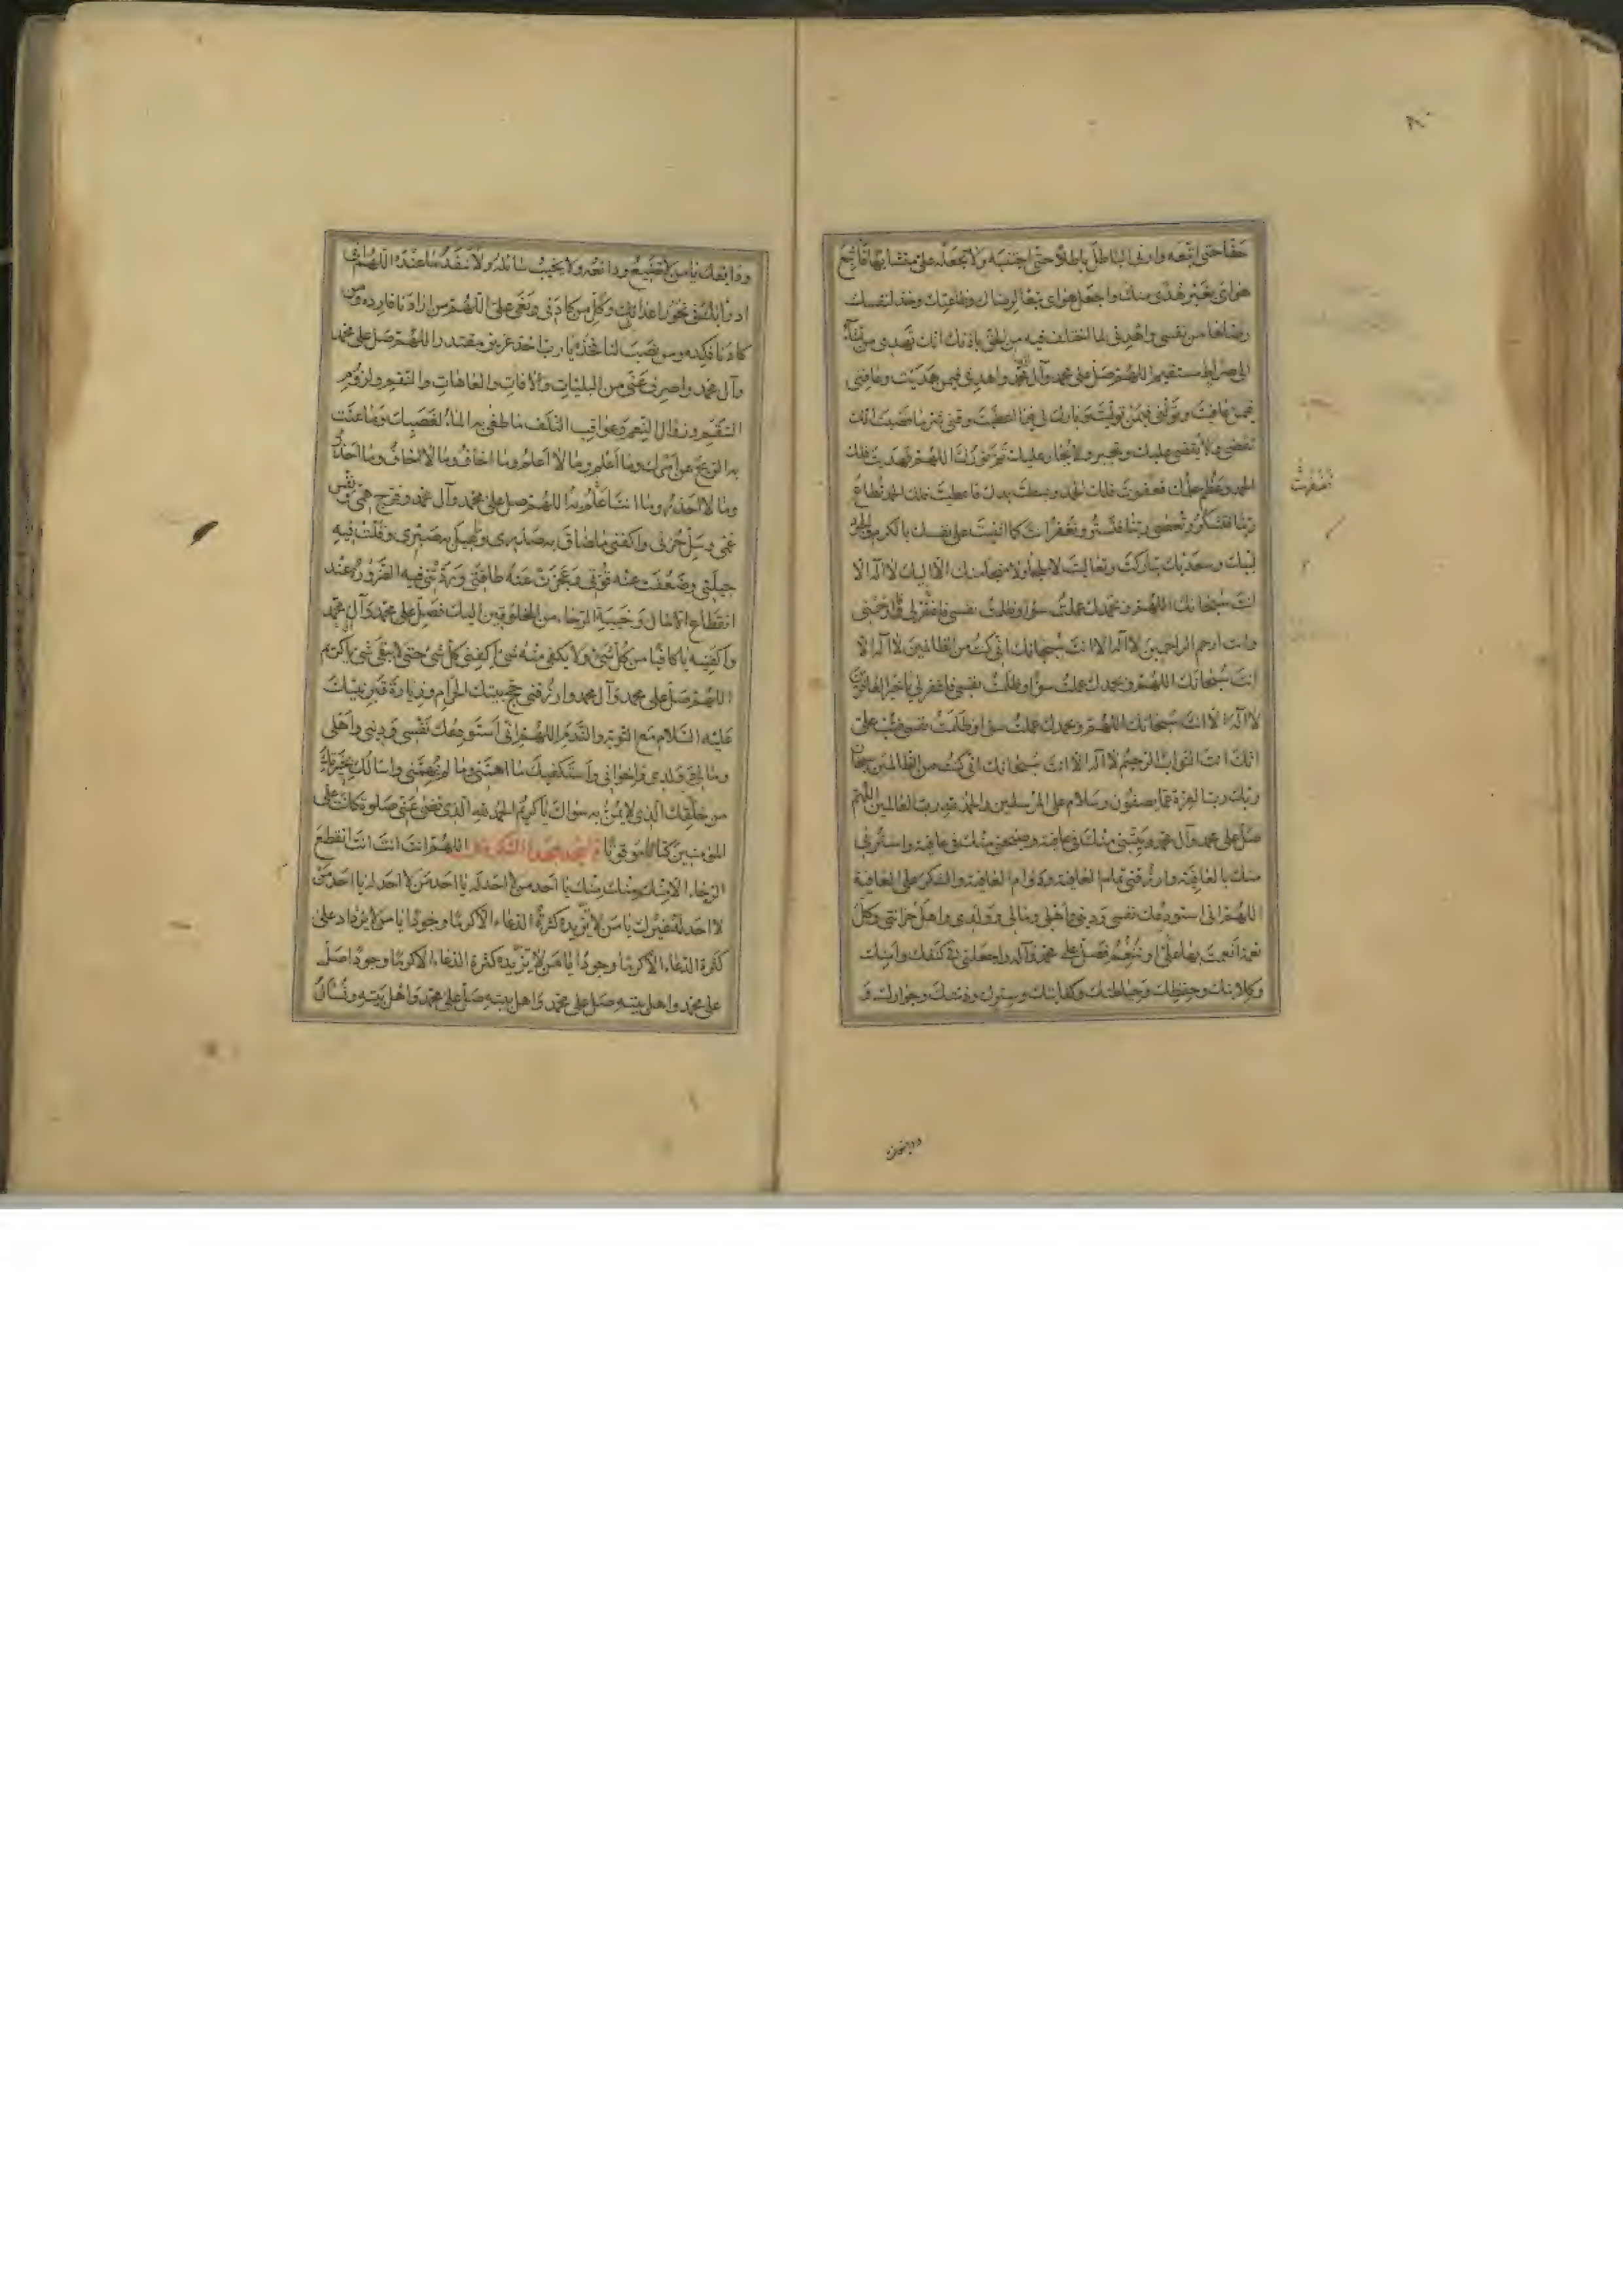 ٨٠
حقا حتى اتبعه وارنى الباطل باطلا حتى اجتنبه ولا تجعله على متشابها فاتبع
هواى بغير هدى منك واجعل هواى تبعا لرضاك وطاعتك وخذ لنفسك
رضاها من نفسى واهدنى لما اختلف فيه من الحق باذنك انك تهدى من تشاء
الى صراط مستقيم اللهم صل على محمد وآل محمد واهدنى فيمن هديت وعافنى
فيمن عافيت وتولنى فيمن توليت وبارك لى فيما اعطيت وقنى شر ما قضيت انك
تقضى ولا يقضى عليك وتجير ولا يجار عليك تم نورك اللهم فهديت فلك
الحمد وعظم حلمك فعفوت فلك الحمد وبسطت يدك فاعطيت فلك الحمد تطاع
ربنا فتشكر وتعصى ربنا فتستر وتغفر انت كما اثنيت على نفسك بالكرم والجود
لبيك وسعديك تباركت وتعاليت لا ملجأ ولا منجا منك الا اليك لا اله الا
انت سبحانك اللهم وبحمدك عملت سوءا وظلمت نفسى فاغفر لى وارحمنى
وانت ارحم الراحمين لا اله الا انت سبحانك انى كنت من الظالمين لا اله الا
انت سبحانك اللهم وبحمدك عملت سوءا وظلمت نفسى فاغفر لى يا خير الغافرين
لا اله الا انت سبحانك اللهم وبحمدك عملت سوءا وظلمت نفسى فتب على
انك انت التواب الرحيم لا اله الا انت سبحانك انى كنت من الظالمين سبحان
ربك رب العزة عما يصفون وسلام على المرسلين والحمد لله رب العالمين اللهم
صل على محمد وآل محمد وبيتنى منك فى عافية وصبحنى منك فى عافية واسترنى
منك بالعافية وارزقنى تمام العافية ودوام العافية والشكر على العافية
اللهم انى استودعك نفسى ودينى واهلى ومالى وولدى واهل حزانتى وكل
نعمة انعمت بها على او تنعم فصل على محمد وآله واجعلنى فى كنفك وامنك
وكلاءتك وحفظك وحياطتك وكفايتك وسترك وذمتك وجوارك و
ودايعك
ودايعك يا من لا تضيع ودائعه ولا يخيب سائله ولا ينفد ما عنده اللهم انى
ادرأ بك فى نحور اعدائى وكل من كادنى وبغى على اللهم من ارادنا فارده ومن
كادنا فكده ومن نصب لنا فخذه يا رب اخذ عزيز مقتدر اللهم صل على محمد
وآل محمد واصرف عنى من البليات والآفات والعاهات والنقم ولزوم
السقم وزوال النعم وعواقب التلف ما طغى به الماء لغضبك وما عتت
به الريح عن امرك وما اعلم وما لا اعلم وما اخاف وما لا اخاف وما احذر
وما لا احذر وما انت اعلم به اللهم صل على محمد وآل محمد وفرج همى ونفس
غمى وسل حزنى واكفنى ما ضاق به صدرى وعيل به صبرى وقلت فيه
حيلتى وضعفت عنه قوتى وعجزت عنه طاقتى وردتنى فيه الضرورة عند
انقطاع الآمال وخيبة الرجاء من المخلوقين اليك فصل على محمد وآل محمد
واكفنيه يا كافيا من كل شىء ولا يكفى منه شىء اكفنى كل شىء حتى لا يبقى شىء يا كريم
اللهم صل على محمد وآل محمد وارزقنى حج بيتك الحرام وزيارة قبر نبيك
عليه السلام مع التوبة والندم اللهم انى استودعك نفسى ودينى واهلى
ومالى وولدى واخوانى واستكفيك ما اهمنى وما لم يهمنى واسالك بخيرتك
من خلقك الذى لا يمن به سواك يا كريم الحمد لله الذى قضى عنى صلوة كانت على
المؤمنين كتابا موقوتا ثم اسجد سجدة الشكر وقل اللهم انت انت انت انقطع
الرجاء الا منك منك منك يا احد من لا احد له يا احد من لا احد له يا احد من
لا احد له غيرك يا من لا يزيده كثرة الدعاء الا كرما وجودا يا من لا يزداد على
كثرة الدعاء الا كرما وجودا يا من لا يزيده كثرة الدعاء الا كرما وجودا صل
على محمد واهل بيته صل على محمد واهل بيته صل على محمد واهل بيته وتسأل